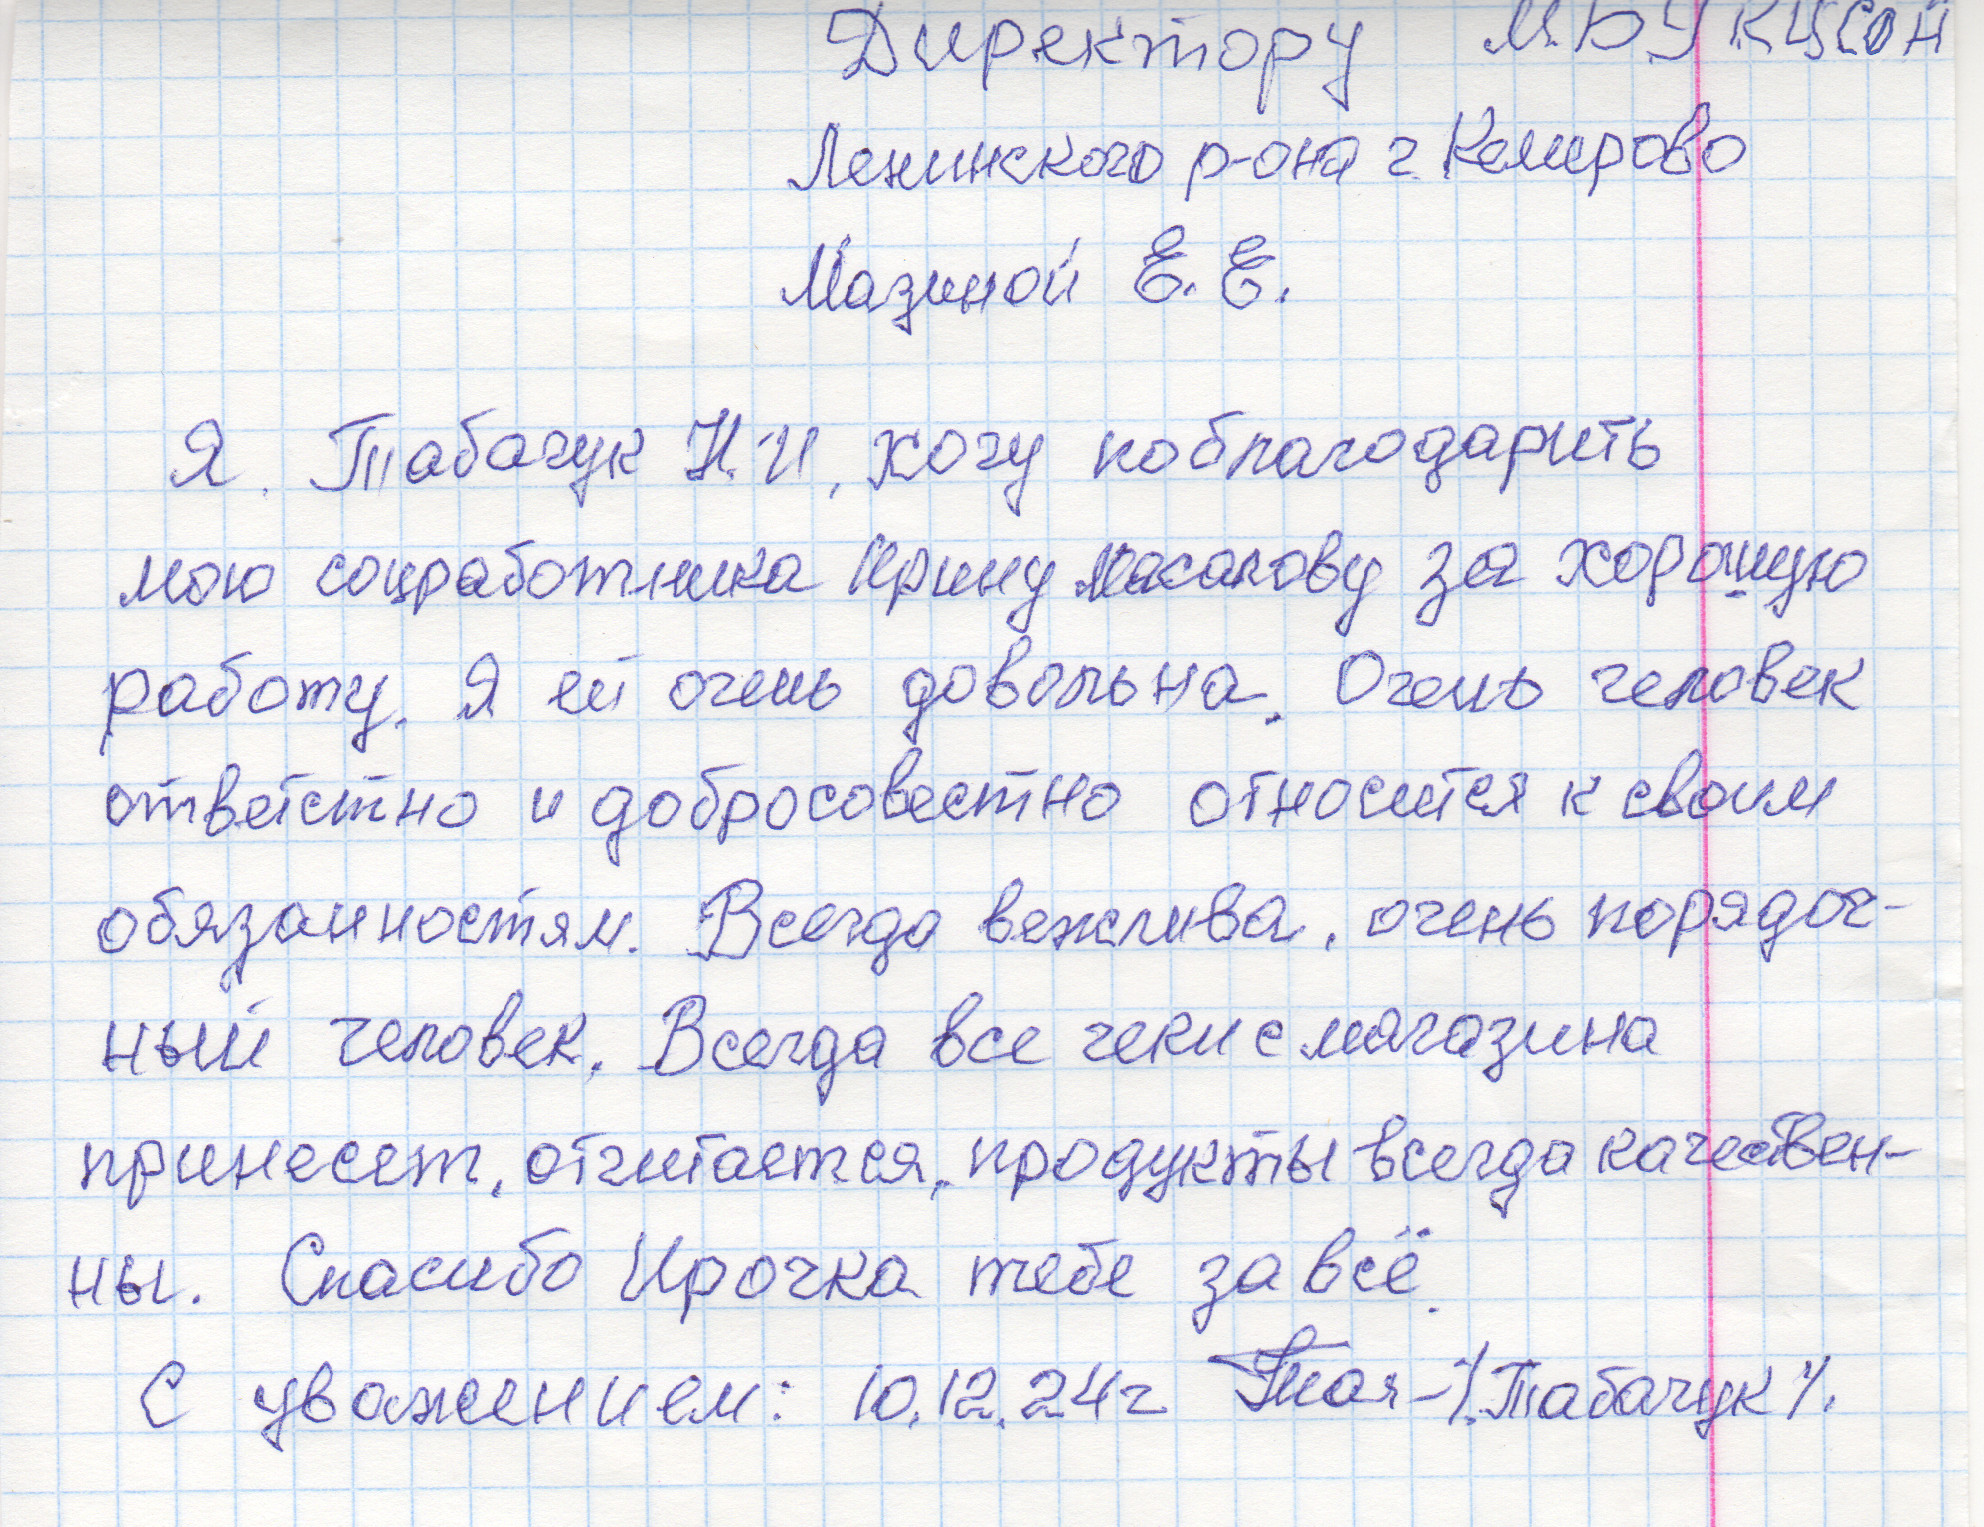 Директору МБУ КЦСОН
Ленинского р-она г. Кемерово
Мазиной Е. Е.
Я. Табачук Н. И, хочу поблагодарить
мою соцработника Ирину Масалову за хорошую
работу. Я ей очень довольна. Очень человек
ответстно и добросовестно относится к своим
обязанностям. Всегда вежлива, очень порядоч-
ный человек. Всегда все чеки с магазина
принесет, отчитается, продукты всегда качествен-
ны. Спасибо Ирочка тебе за всё.
С уважением: 10.12.24г /Табачук/.